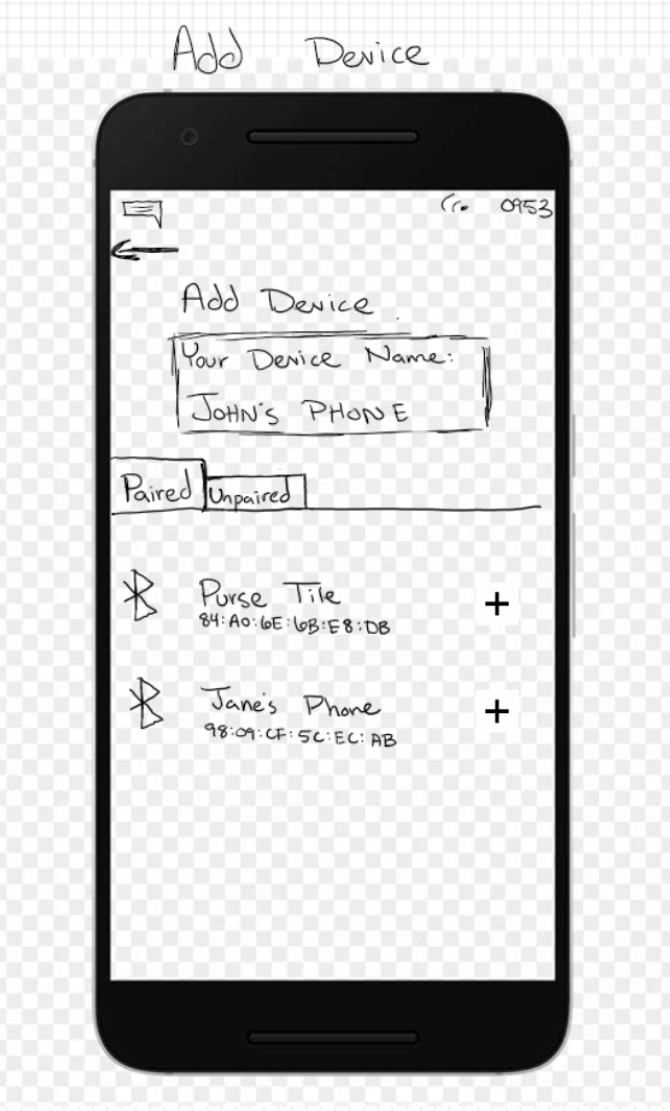 Add Device
0953
Add Device
Your Device Name:
JOHN'S PHONE
Paired Unpaired
Purse Tile
84:A0:6E:6B:E8:DB
Jane's Phone
98:09:CF:5C:EC:AB